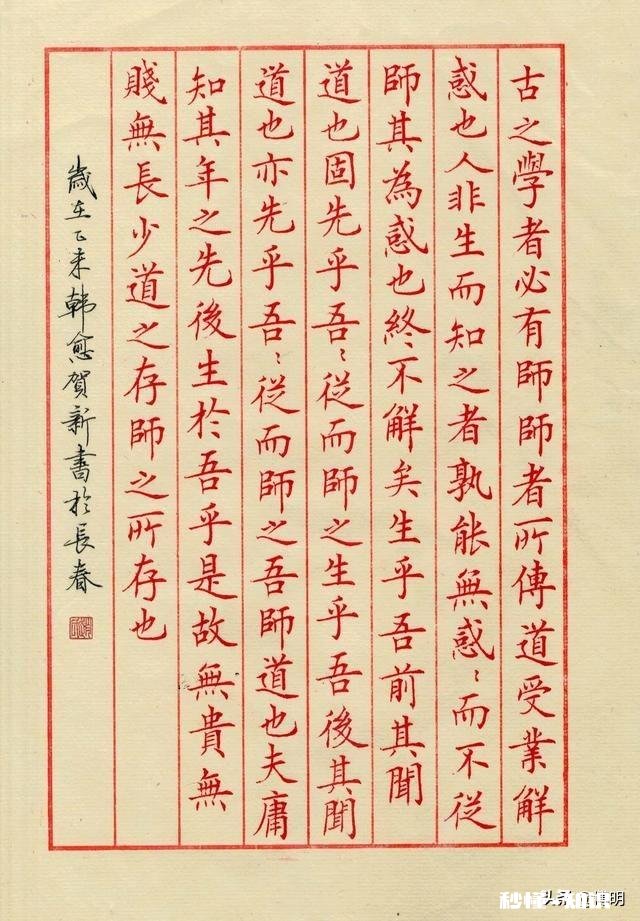 古之學者必有師師者所傳道受業解
惑也人非生而知之者孰能無惑〻而不從
師其為惑也終不解矣生乎吾前其聞
道也固先乎吾〻從而師之生乎吾後其聞
道也亦先乎吾〻從而師之吾師道也夫庸
知其年之先後生於吾乎是故無貴無
賤無長少道之存師之所存也
歲在乙未韓愈賀新書於長春